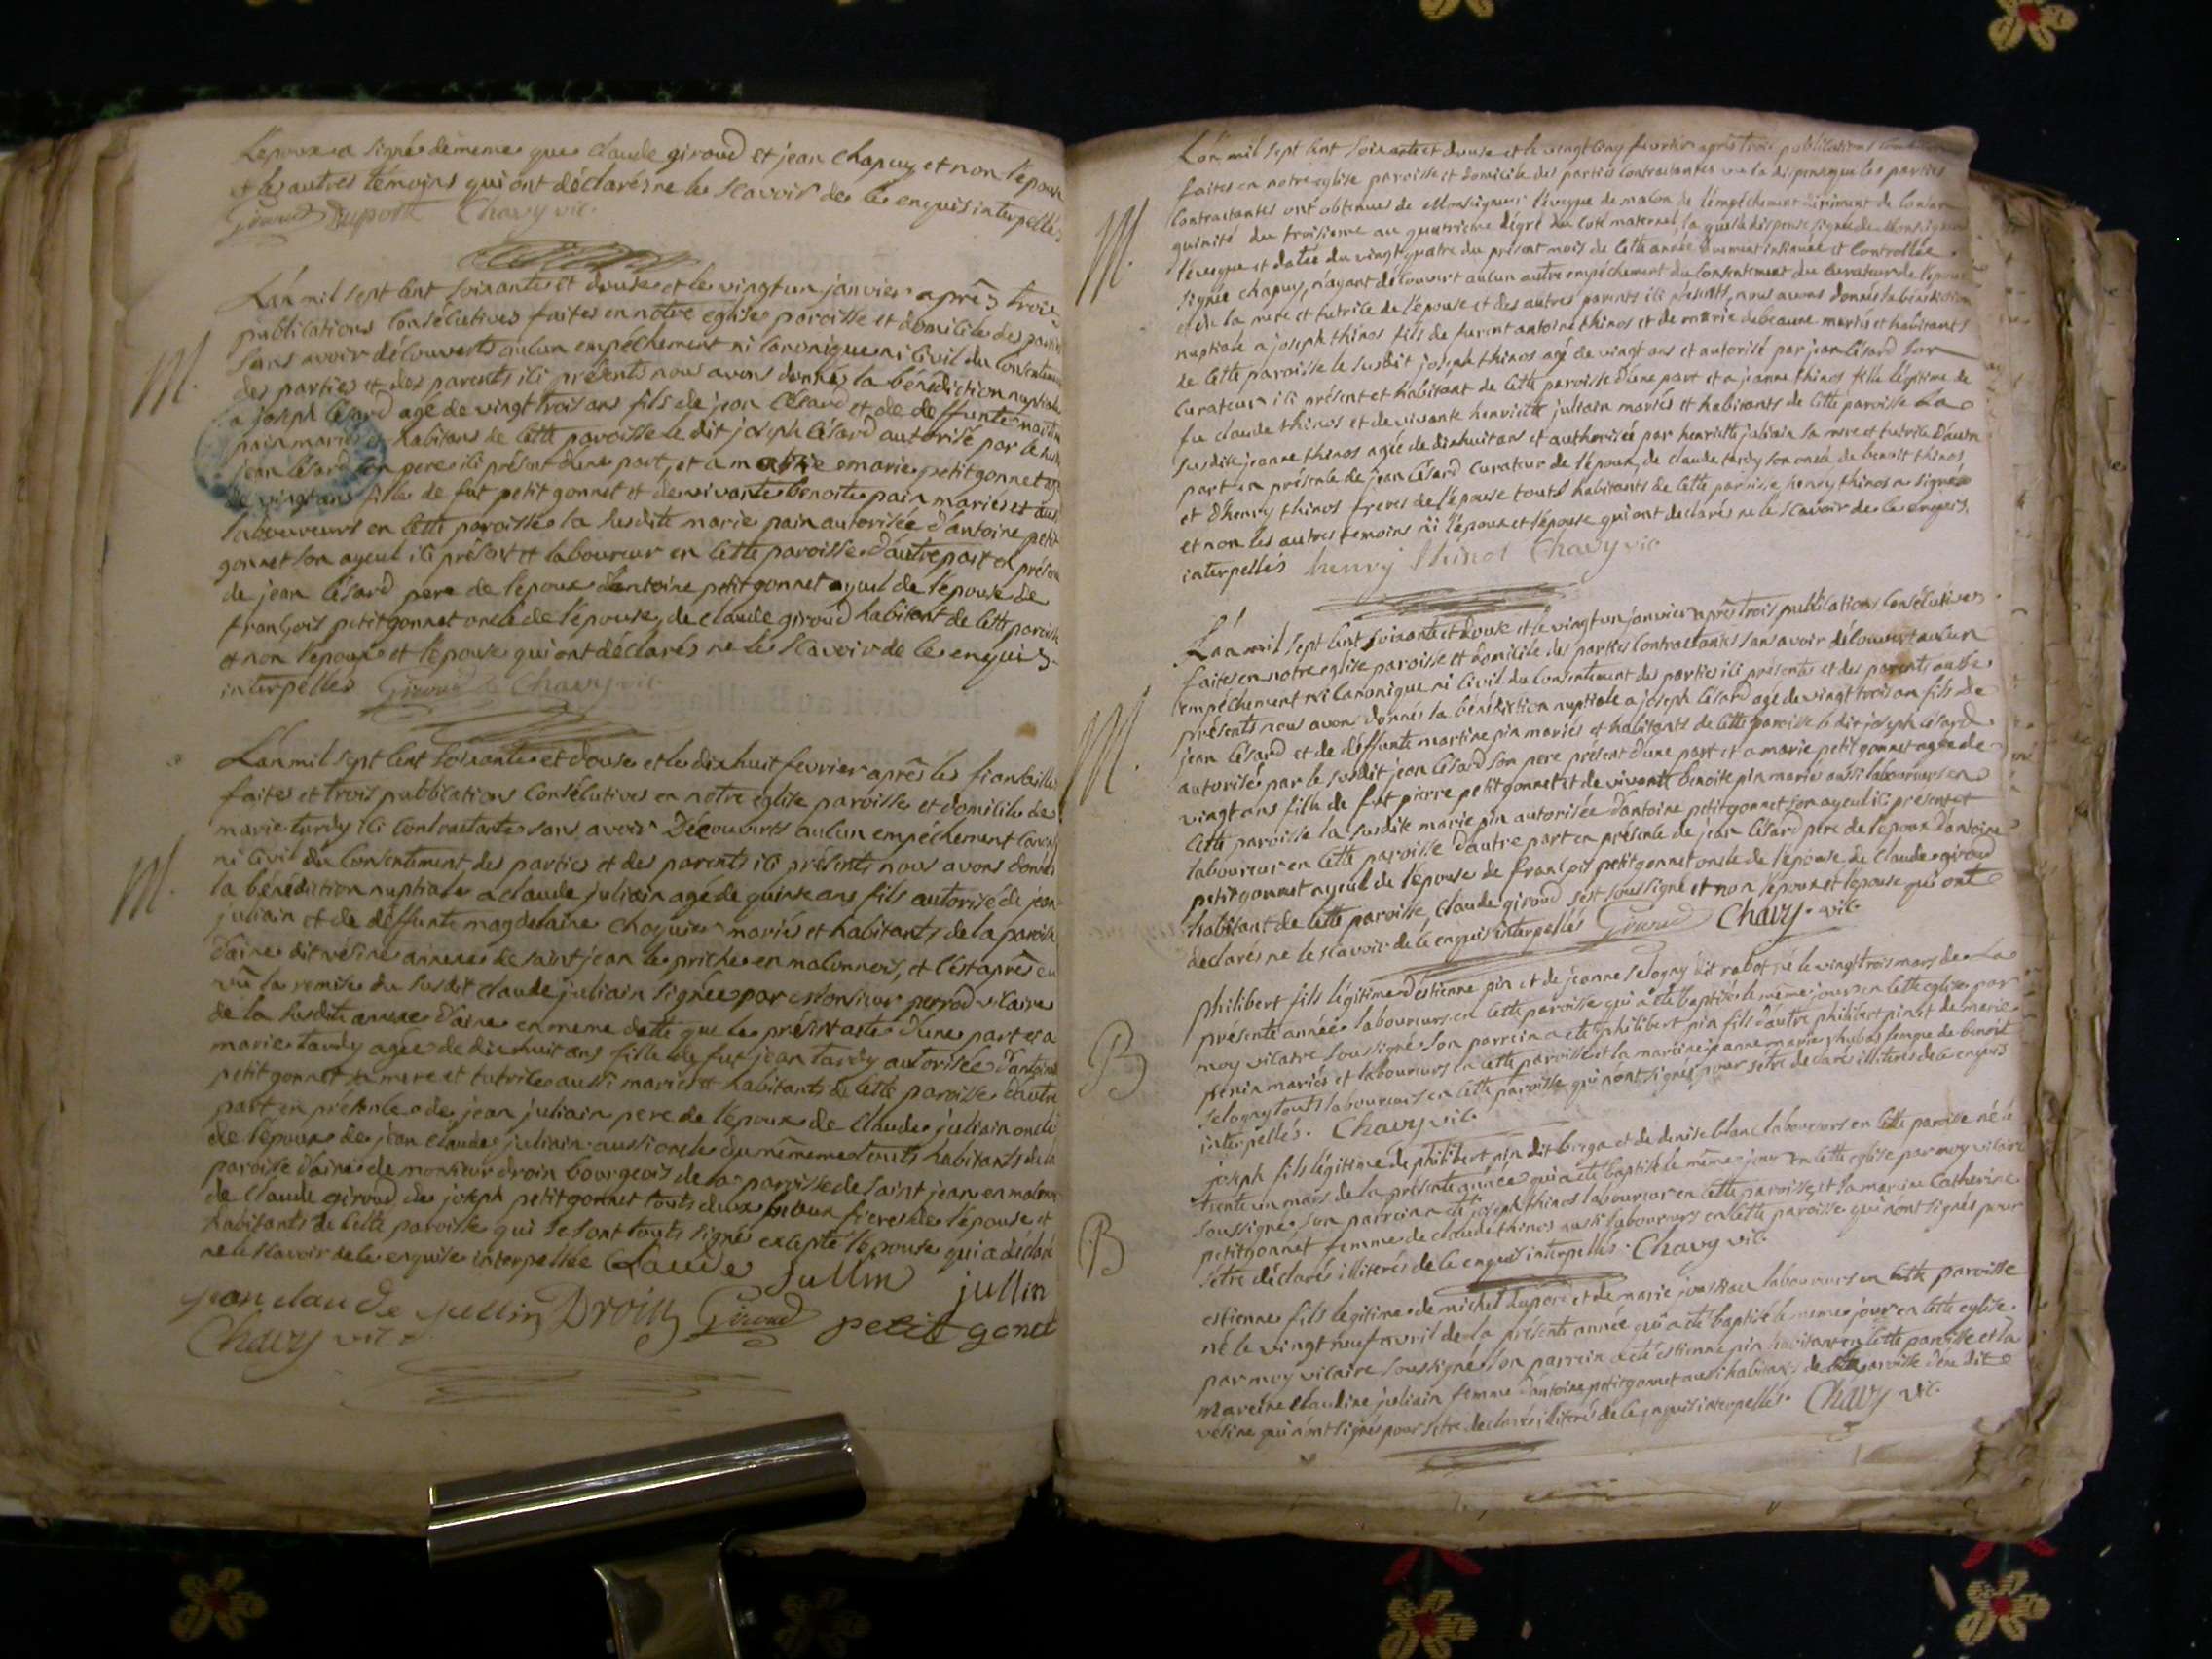 L'epoux a signé de meme que claude giroud et jean chapuy et non l'epouse
et les autres témoins qui ont déclarés ne le scavoir de ce enquis interpellés
Giroud Duport Chavy vic.
L'an mil sept cent soixante et douse et le vingt un janvier après trois
publications consécutives faites en notre eglise paroisse et domicile des parties
sans avoir découverts aucun empéchement ni canonique ni civil du consentement
des parties et des parents ici présents nous avons donnés la bénédiction nuptiale
a joseph césard agé de vingt trois ans fils de jean césard et de deffunte martine
pain mariés et habitans de cette paroisse le dit joseph césard autorisé par le
jean césard son pere ici présent d'une part, et a marie petit gonnet
de vingt ans fille de fut petit gonnet et de vivante benoite pain mariés et
laboureurs en cette paroisse la susdite marie pain autorisée d'antoine petit
gonnet son ayeul ici présent et laboureur en cette paroisse d'autre part en présence
de jean césard pere de l'epoux d'antoine petit gonnet ayeul de l'epouse de
françois petit gonnet oncle de l'epouse, de claude giroud habitant de cette paroisse
et non l'epoux et l'epouse qui ont déclarés ne le scavoir de ce enquis
interpellés Giroud Chavy vic.
M.
L'an mil sept cent soixante et douse et le dix huit fevrier après les fiancailles
faites et trois publications consécutives en notre eglise paroisse et domicile de
marie tardy ici contractante sans avoir Découverts aucun empéchement
ni civil du consentement des parties et des parents ici présents nous avons donnés
la bénédiction nuptiale a claude juliain agé de quinse ans fils autorisé de jean
juliain et de deffunte magdelaine chaquier mariés et habitants de la paroisse
d'aine dit vésine annexe de saint jean le priche en maconnois, et c'est après en
vû la remise du susdit claude juliain signée par monsieur perrod vicaire
de la susdite annexe d'aine en meme datte que le présent acte d'une part et a
marie tardy agée de dix huit ans fille de fut jean tardy autorisée d'antoinette
petit gonnet sa mere et tutrice aussi mariés et habitants de cette paroisse d'autre
part en présence de jean juliain pere de l'epoux de claude juliain oncle
de l'epoux de jean claude juliain aussi oncle du même touts habitants de la
paroisse d'aine de monsieur droin bourgeois de la paroisse de saint jean en maconnois
de claude giroud de joseph petit gonnet touts deux beaux freres de l'epouse et
habitants de cette paroisse qui se sont touts signé excepté l'epouse qui a déclaré
ne le scavoir de ce enquise interpellée Claude Jullin jullin
jean claude jullin Droin Giroud petit gonet
Chavy vic.
M.
L'an mil sept cent soixante et douse et le vingt cinq fevrier après trois publications
faites en notre eglise paroisse et domicile des parties contractantes vu la dispense que les parties
contractantes ont obtenues de Monseigneur l'eveque de macon de l'empéchement dirimant de consan
guinité du troisieme au quatrieme dégré du coté maternel, la quelle dispense signée de Monseigneur
l'eveque et datée du vingt quatre du présent mois de cette année duement insinuée et controllée
signée chapuy, n'ayant découvert aucun autre empéchement du consentement du curateur de l'epoux
et de la mere et tutrice de l'epouse et des autres parents ici présents, nous avons donnés la bénédiction
nuptiale a joseph thinos fils de furent antoine thinos et de marie debeaune mariés et habitants
de cette paroisse le susdit joseph thinos agé de vingt ans et autorisé par jean césard son
curateur ici présent et habitant de cette paroisse d'une part et a jeanne thinos fille légitime de
fu claude thinos et de vivante henriette juliain mariés et habitants de cette paroisse la
susdite jeanne thinos agée de dixhuit ans et authorisée par henriette juliain sa mere et tutrice D'autre
part en présence de jean césard curateur de l'epoux, de claude tardy son oncle, de benoit thinos,
et d'henry thinos freres de l'epouse touts habitants de cette paroisse, henry thinos a signé
et non les autres temoins ni l'epoux et l'epouse qui ont declarés ne le scavoir de ce enquis
interpellés henry thinot Chavy vic
M.
L'an mil sept cent soixante et douse et le vingt un janvier après trois publications consécutives
faites en notre eglise paroisse et domicile des parties contractantes sans avoir découvert aucun
empéchement ni canonique ni civil du consentement des parties ici présentes et des parents aussi
présents nous avons donnés la bénédiction nuptiale a joseph césard agé de vingt trois ans fils de
jean césard et de deffunte martine pin mariés et habitants de cette paroisse le dit joseph césard
autorisé par le susdit jean césard son pere présent d'une part et a marie petit gonnet agée de
vingt ans fille de fut pierre petit gonnet et de vivante benoite pin mariés aussi laboureurs en
cette paroisse la susdite marie pin autorisée d'antoine petit gonnet son ayeul ici present et
laboureur en cette paroisse d'autre part en présence de jean césard pere de l'epoux d'antoine
petit gonnet ayeul de l'epouse de françois petit gonnet oncle de l'epouse, de claude giroud
habitant de cette paroisse, claude giroud s'est soussigné et non l'epoux et l'epouse qui ont
declarés ne le scavoir de ce enquis interpellés Giroud Chavy. vic
M.
philibert fils légitime d'estienne pin et de jeanne selogny dit rabot né le vingt trois mars de la
présente année laboureurs en cette paroisse qui a été baptisé le même jour en cette eglise par
moy vicaire soussigné son parrein a été philibert pin fils d'autre philibert pin et de marie
penin mariés et laboureurs en cette paroisse et la mareine jeanne marie femme de benoit
selogny touts laboureurs en cette paroisse qui n'ont signés pour s'etre declarés illiterés de ce enquis
interpellés. Chavy vic.
B
joseph fils légitime de philibert pin dit berga et de denise blanc laboureurs en cette paroisse né le
trente un mars de la présente année qui a été baptisé le même jour en cette eglise par moy vicaire
soussigné, son parrein a été joseph thinos laboureur en cette paroisse, et la mareine Catherine
petitgonnet femme de claude thinos aussi laboureurs en cette paroisse qui n'ont signés pour
s'etre déclarés illiterés de ce enquis interpellés. Chavy vic
B
estienne fils legitime de michel duport et de marie laboureurs en cette paroisse
né le vingt neuf avril de la présente année qui a été baptisé le meme jour en cette eglise
par moy vicaire soussigné son parrein a été estienne pin habitant en cette paroisse et la
mareine claudine juliain femme d'antoine petitgonnet aussi habitants de cette paroisse d'ene dit
vesine qui n'ont signés pour s'etre declarés illiterés de ce enquis interpellés. Chavy vic.